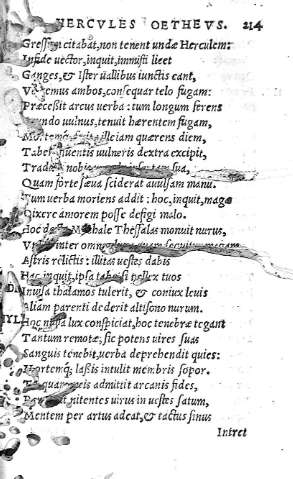 HERCVLES OETHEVS. 214
Gressum citabat, non tenent undæ Herculem:
Infide uector, inquit, immisti licet
Ganges, & Ister uallibus iunctis eant,
ambos, consequar telo fugam:
Præcessit arcus uerba: tum longum ferens
uulnus, tenuit hærentem fugam,
quærens diem,
fluentis uulneris dextra excipit,
sua,
Quam forte sæua sciderat auulsam manu.
Tum uerba moriens addit: hoc, inquit, magæ
Dixere amorem posse defigi malo.
Hoc Mychale Thessalas monuit nurus,
inter omnes
Astris relictis: illitas uestes dabis
Hac, inquit, ipsa tabe, si pellex tuos
Inuisa thalamos tulerit, & coniux leuis
Aliam parenti dederit altisono nurum.
Hoc nulla lux conspiciat, hoc tenebræ tegant
Tantum remotæ, sic potens uires suas
Sanguis tenebit, uerba deprehendit quies:
Mortemq; lassis intulit membris sopor.
admittit arcanis fides,
nitentes uirus in uestes datum,
Mentem per artus adeat, & tactus sinus
Intret